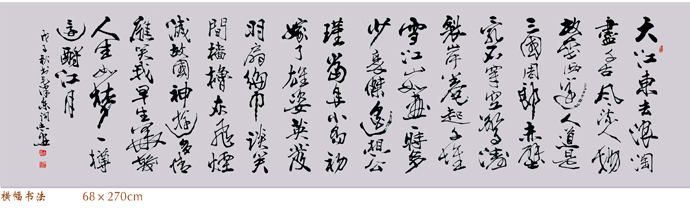 大江東去浪淘
盡千古風流人物
故壘西邊人道是
三國周郎赤壁
亂石穿空驚濤
裂岸卷起千堆
雪江山如畫一時多
少豪傑遙想公
瑾當年小喬初
嫁了雄姿英發
羽扇綸巾談笑
間檣櫓灰飛煙
滅故國神遊多情
應笑我早生華髮
人生如夢一樽
還酹江月
戊子秋书
横幅书法 68×270cm